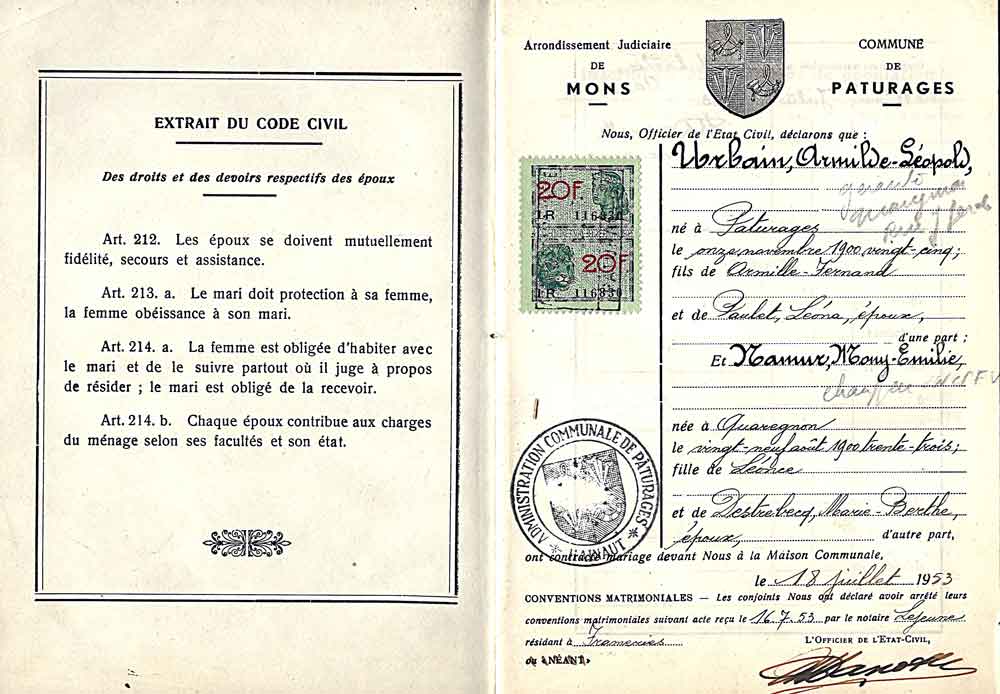 EXTRAIT DU CODE CIVIL
Des droits et des devoirs respectifs des époux
Art. 212. Les époux se doivent mutuellement
fidélité, secours et assistance.
Art. 213. a. Le mari doit protection à sa femme,
la femme obéissance à son mari.
Art. 214. a. La femme est obligée d'habiter avec
le mari et de le suivre partout où il juge à propos
de résider ; le mari est obligé de la recevoir.
Art. 214. b. Chaque époux contribue aux charges
du ménage selon ses facultés et son état.
Arrondissement Judiciaire
DE
MONS
COMMUNE
DE
PATURAGES
Nous, Officier de l'Etat Civil, déclarons que :
Urbain, Armilde-Léopold,
né à Paturages
le onze novembre 1900 vingt-cinq;
fils de Armille-Fernand
et de Paulet, Léona, époux,
d'une part ;
Et Namur, Mony-Emilie,
née à Quaregnon
le vingt-neuf août 1900 trente-trois;
fille de Léonce
et de Destrebecq, Marie-Berthe,
époux, d'autre part,
ont contracté mariage devant Nous à la Maison Communale,
le 18 juillet 1953
CONVENTIONS MATRIMONIALES — Les conjoints Nous ont déclaré avoir arrêté leurs
conventions matrimoniales suivant acte reçu le 16.7.53 par le notaire Lejeune
résidant à Frameries
L'OFFICIER DE L'ETAT-CIVIL,
ou NÉANT.
20F.
I.R 116830
20F
I.R 116830
ADMINISTRATION COMMUNALE DE PÂTURAGES
* HAINAUT *